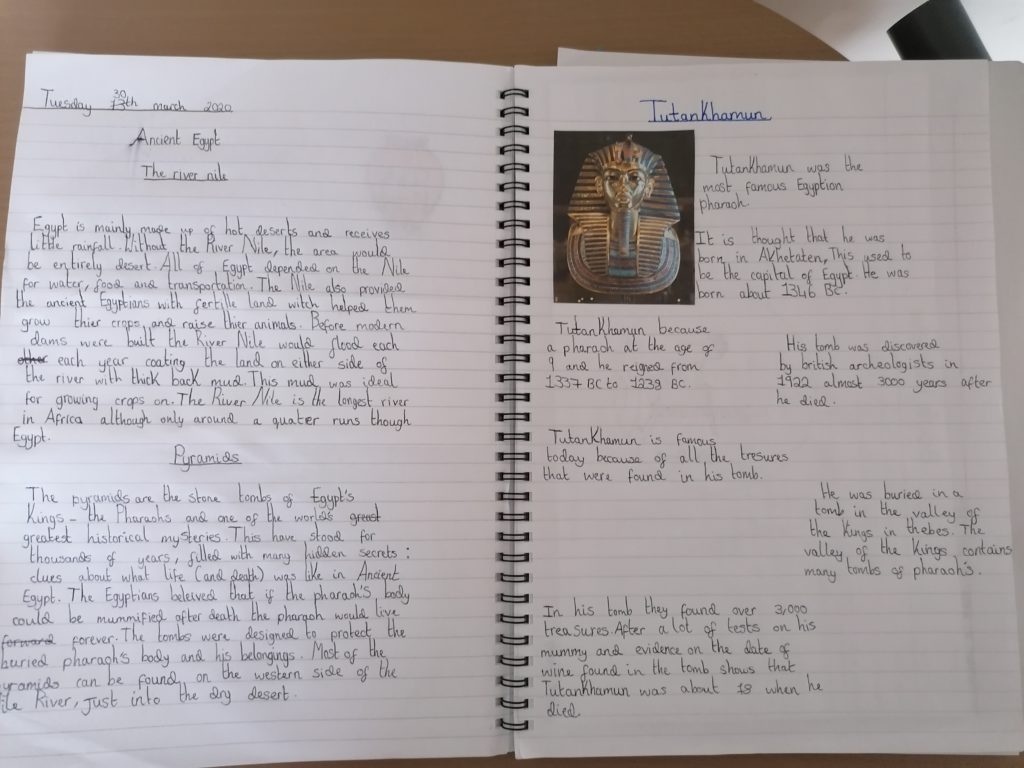 Tuesday 30th march 2020
Ancient Egypt
The river nile
Egypt is mainly made up of hot deserts and receives
little rainfall. Without the River Nile, the area would
be entirely desert. All of Egypt depended on the Nile
for water, food and transportation. The Nile also provided
the ancient Egyptians with fertile land witch helped them
grow thier crops and raise thier animals. Before modern
dams were built the River Nile would flood each
other each year coating the land on either side of
the river with thick back mud. This mud was ideal
for growing crops on. The River Nile is the longest river
in Africa although only around a quater runs though
Egypt.
Pyramids
The pyramids are the stone tombs of Egypt's
Kings - the Pharaohs and one of the worlds greast
greatest historical mysteries. This have stood for
thousands of years, filled with many hidden secrets:
clues about what life (and death) was like in Ancient
Egypt. The Egyptians beleived that if the pharaoh's body
could be mummified after death the pharaoh would live
forward forever. The tombs were designed to protect the
buried pharaoh's body and his belongings. Most of the
yramids can be found on the western side of the
ile River, just into the dry desert.
Tutankhamun
Tutankhamun was the
most famous Egyption
pharaoh.
It is thought that he was
born in Akhetaten, This used to
be the capital of Egypt. He was
born about 1346 BC.
Tutankhamun because
a pharaoh at the age of
9 and he reigned from
1337 BC to 1239 BC.
His tomb was discovered
by british archeologists in
1922 almost 3000 years after
he died.
Tutankhamun is famous
today because of all the tresures
that were found in his tomb.
He was buried in a
tomb in the valley of
the Kings in thebes. The
valley of the Kings contains
many tombs of pharaoh's.
In his tomb they found over 3,000
treasures. After a lot of tests on his
mummy and evidence on the date of
wine found in the tomb shows that
Tutankhamun was about 18 when he
died.